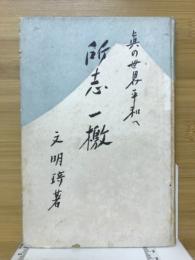 眞の世界平和へ
所志一檄
文明琦著